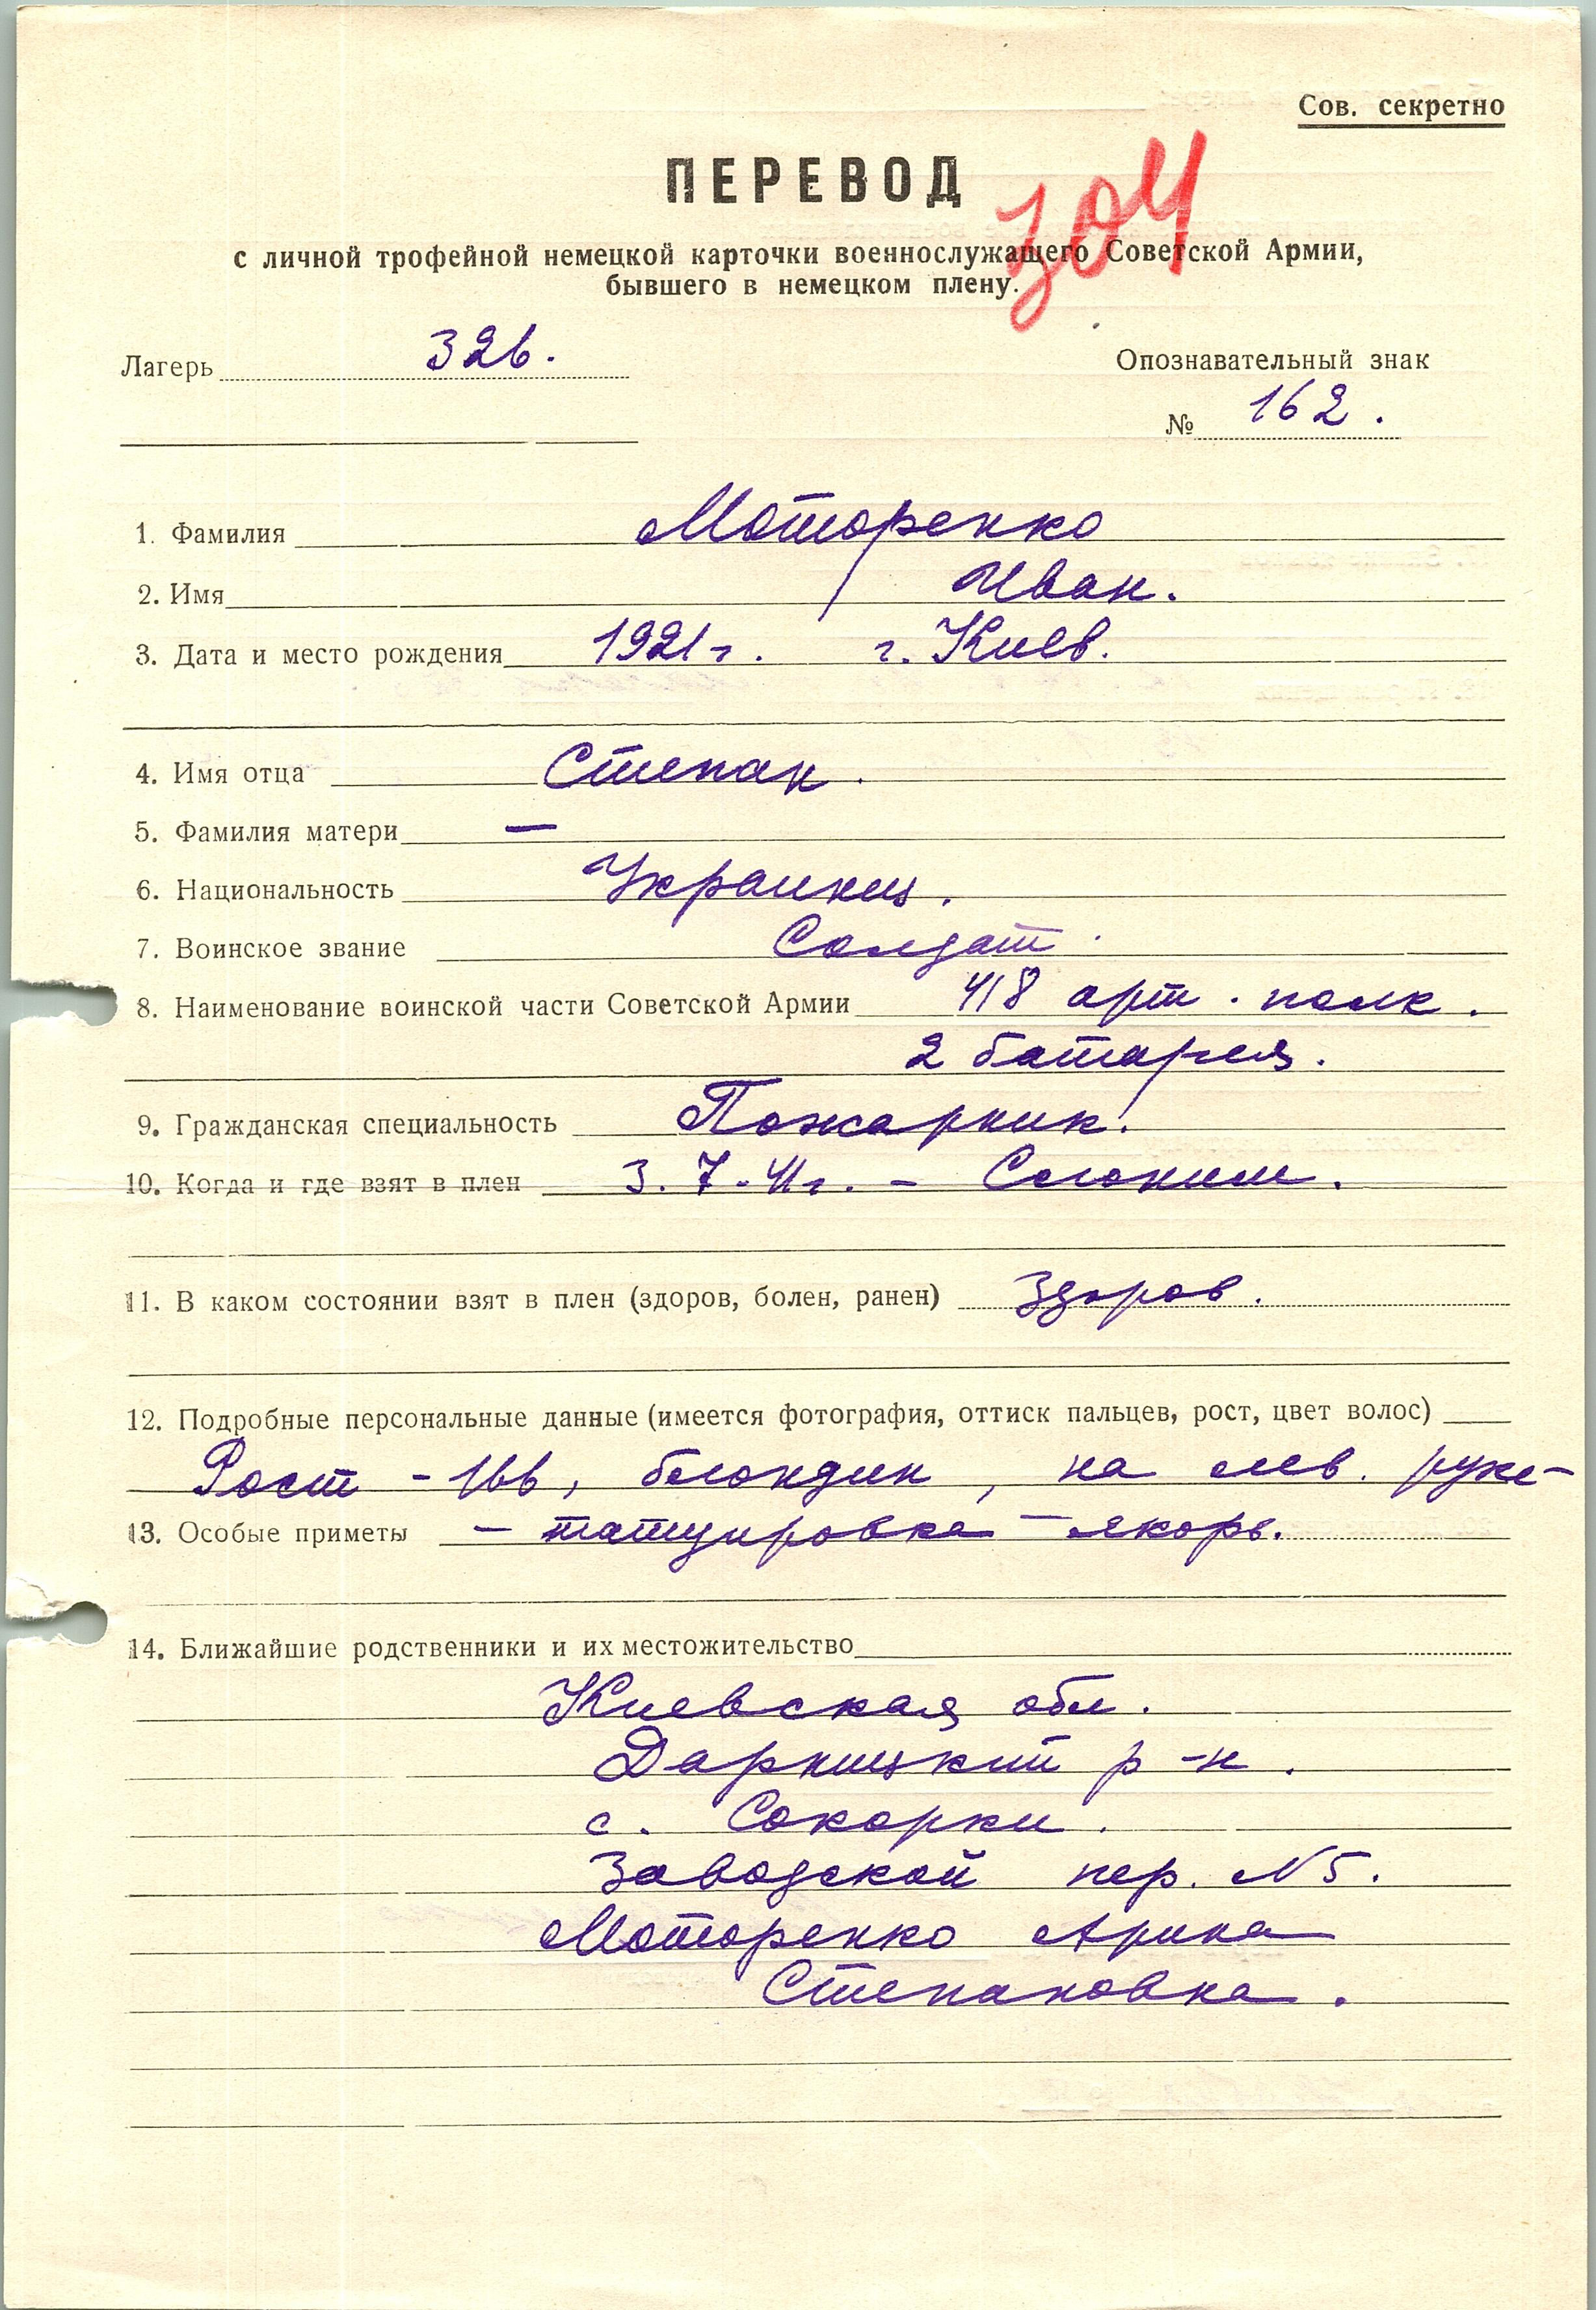 Сов. секретно
ПЕРЕВОД
304
с личной трофейной немецкой карточки военнослужащего Советской Армии,
бывшего в немецком плену.
Лагерь 326.
Опознавательный знак
№ 162.
1. Фамилия Моторенко
2. Имя Иван.
3. Дата и место рождения 1921 г. г. Киев.
4. Имя отца Степан.
5. Фамилия матери —
6. Национальность Украинец.
7. Воинское звание Солдат.
8. Наименование воинской части Советской Армии 418 арт. полк.
2 батарея.
9. Гражданская специальность Пожарник.
10. Когда и где взят в плен 3.7.41г. - Слоним.
11. В каком состоянии взят в плен (здоров, болен, ранен) Здоров.
12. Подробные персональные данные (имеется фотография, оттиск пальцев, рост, цвет волос)
Рост - 166, блондин, на лев. руке-
13. Особые приметы - татуировка - якорь.
14. Ближайшие родственники и их местожительство
Киевская обл.
Дарницкий р-н.
с. Сокорки.
Заводской пер. N 5.
Моторенко Арина
Степановна.